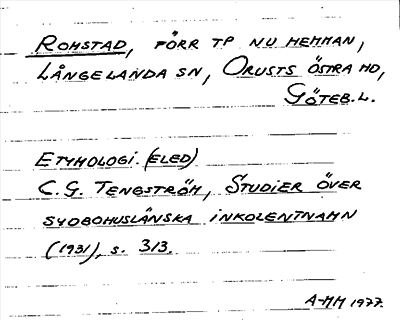 ROMSTAD, FÖRR TP NU HEMMAN,
LÅNGELANDA SN, ORUSTS ÖSTRA HD,
GÖTEB. L.
ETYMOLOGI. (ELED)
C. G. TENGSTRÖM, STUDIER ÖVER
SYDBOHUSLÄNSKA INKOLENTNAMN
(1931), S. 313.
A-MH 1977.